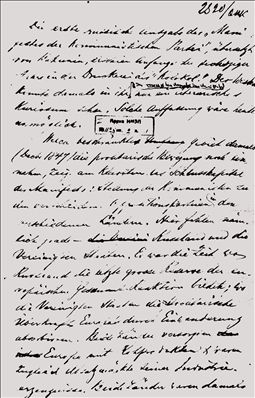 Die erste russische Ausgabe des „Mani-
festes der Kommunistischen Partei", übersetzt
von Bakunin, erschien anfangs der sechsziger
Jahre in der Druckerei des „Kolokol". Der Westen
konnte damals in ihr nur ein literarisches
Kuriosum sehen. Solche Auffassung wäre heute
unmöglich.
Welch beschränktes Gebiet damals
(Dec. 1847) die proletarische Bewegung noch ein-
nahm, zeigt am klarsten das Schlusskapitel
des Manifests: Stellung der Kommunisten zu
den verschiedenen Oppositionsparteien in den
verschiedenen Ländern. Hier fehlen näm-
lich grade – Russland und die
Vereinigten Staaten. Es war die Zeit, wo
Russland die letzte grosse Reserve der eu-
ropäischen Reaktion bildete; wo
die Vereinigten Staaten die proletarische
Überkraft Europas durch Einwanderung
absorbirten. Beide Länder versorgten
Europa mit Rohprodukten u. waren
zugleich Absatzmärkte seiner Industrie-
erzeugnisse. Beide Länder waren damals